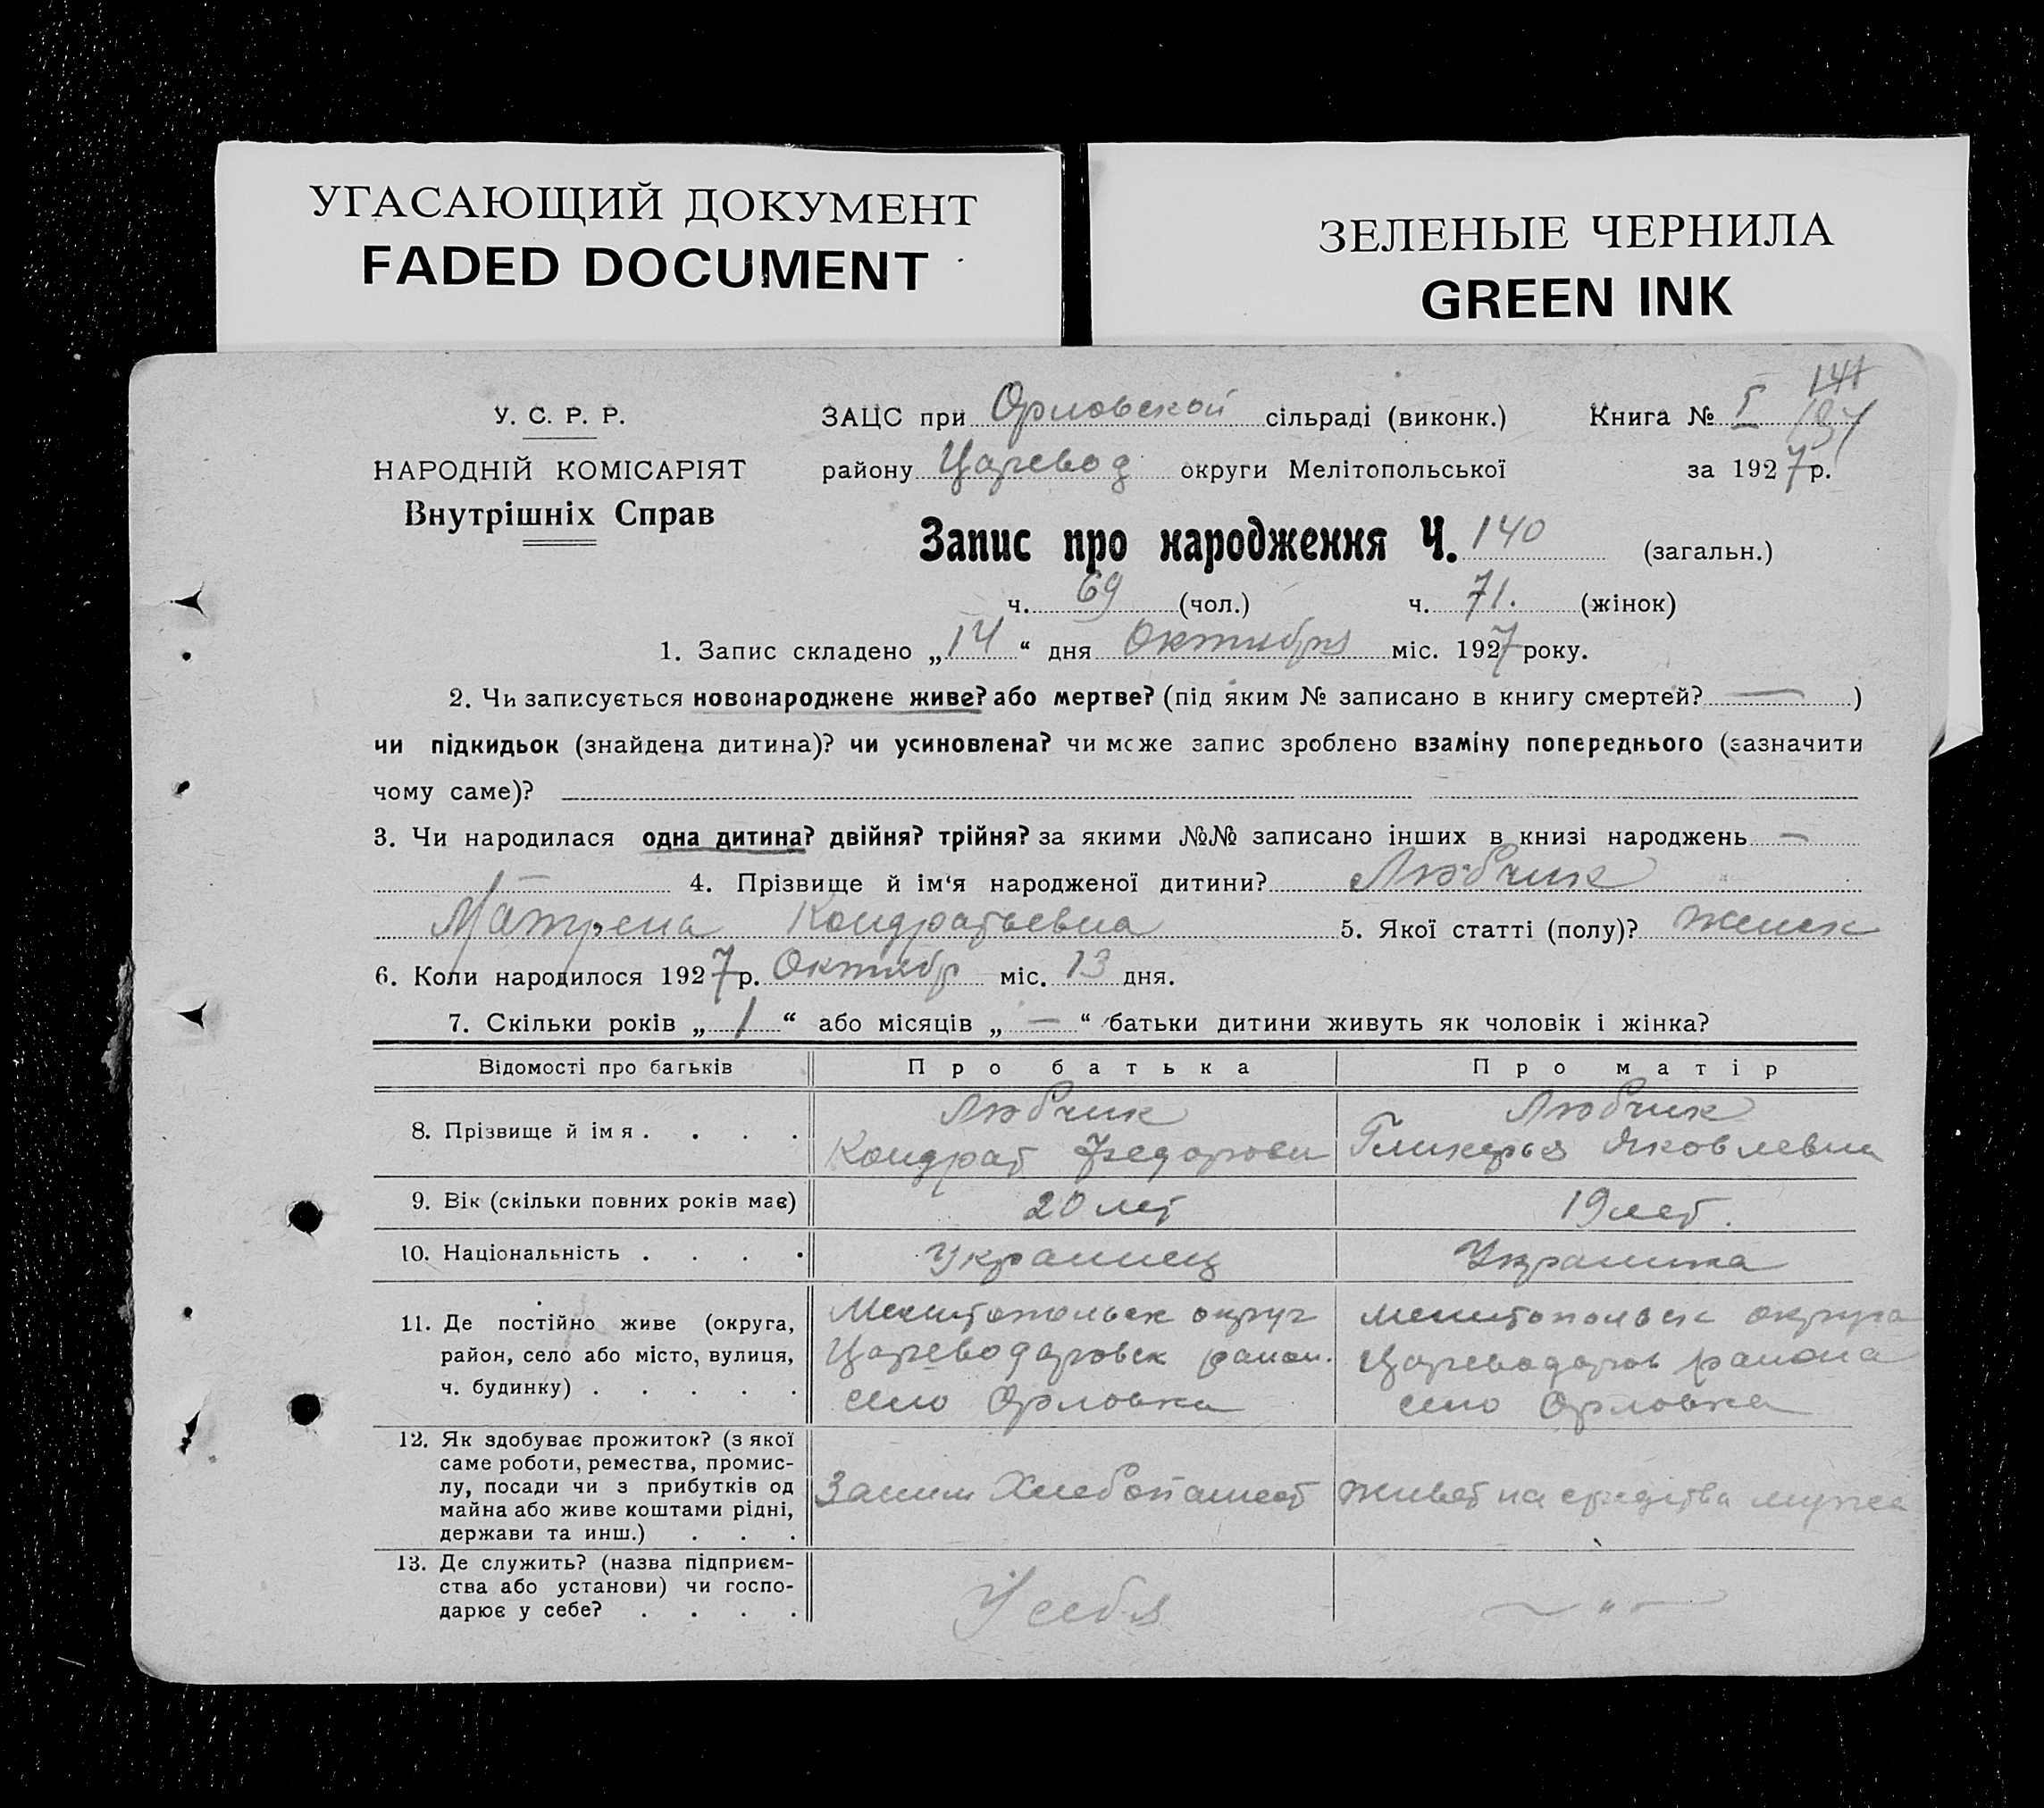 УГАСАЮЩИЙ ДОКУМЕНТ
FADED DOCUMENT
ЗЕЛЕНЫЕ ЧЕРНИЛА
GREEN INK
141
У. С. Р. Р.
НАРОДНІЙ КОМІСАРІЯТ
Внутрішніх Справ
ЗАЦС при Орловской сільраді (виконк.) Книга № I
району Царевод округи Мелітопольської за 1927 р.
Запис про народження Ч. 140 (загальн.)
ч. 69 (чол.) ч. 71. (жінок)
1. Запис складено „14“ дня Октября міс. 1927 року.
2. Чи записується новонароджене живе? або мертве? (під яким № записано в книгу смертей? — )
чи підкидьок (знайдена дитина)? чи усиновлена? чи може запис зроблено взаміну попереднього (зазначити
чому саме)?
3. Чи народилася одна дитина? двійня? трійня? за якими №№ записано інших в книзі народжень —
— 4. Прізвище й ім‘я народженої дитини? Любчик
Матрена Кондратьевна 5. Якої статті (полу)? женск
6. Коли народилося 1927 р. Октябр міс. 13 дня.
7. Скільки років „1“ або місяців „—“ батьки дитини живуть як чоловік і жінка?
Відомості про батьків Про батька Про матір
8. Прізвище й імя . . . . Любчик Любчик
Кондрат Федорови Гликерья Яковлевна
9. Вік (скільки повних років має) 20 лет 19 лет.
10. Національність . . . . Украинец Украинка
11. Де постійно живе (округа, Мелитопольск округ Мелитопольск округа
район, село або місто, вулиця, Цареводаровск район. Цареводаров района
ч. будинку) . . . . . село Орловка село Орловка
12. Як здобуває прожиток? (з якої
саме роботи, ремества, промис-
лу, посади чи з прибутків од Хлебопашест живет на средства мужа
майна або живе коштами рідні,
держави та инш.) . . .
13. Де служить? (назва підприєм-
ства або установи) чи госпо- У себя — „ —
дарює у себе? . . . .